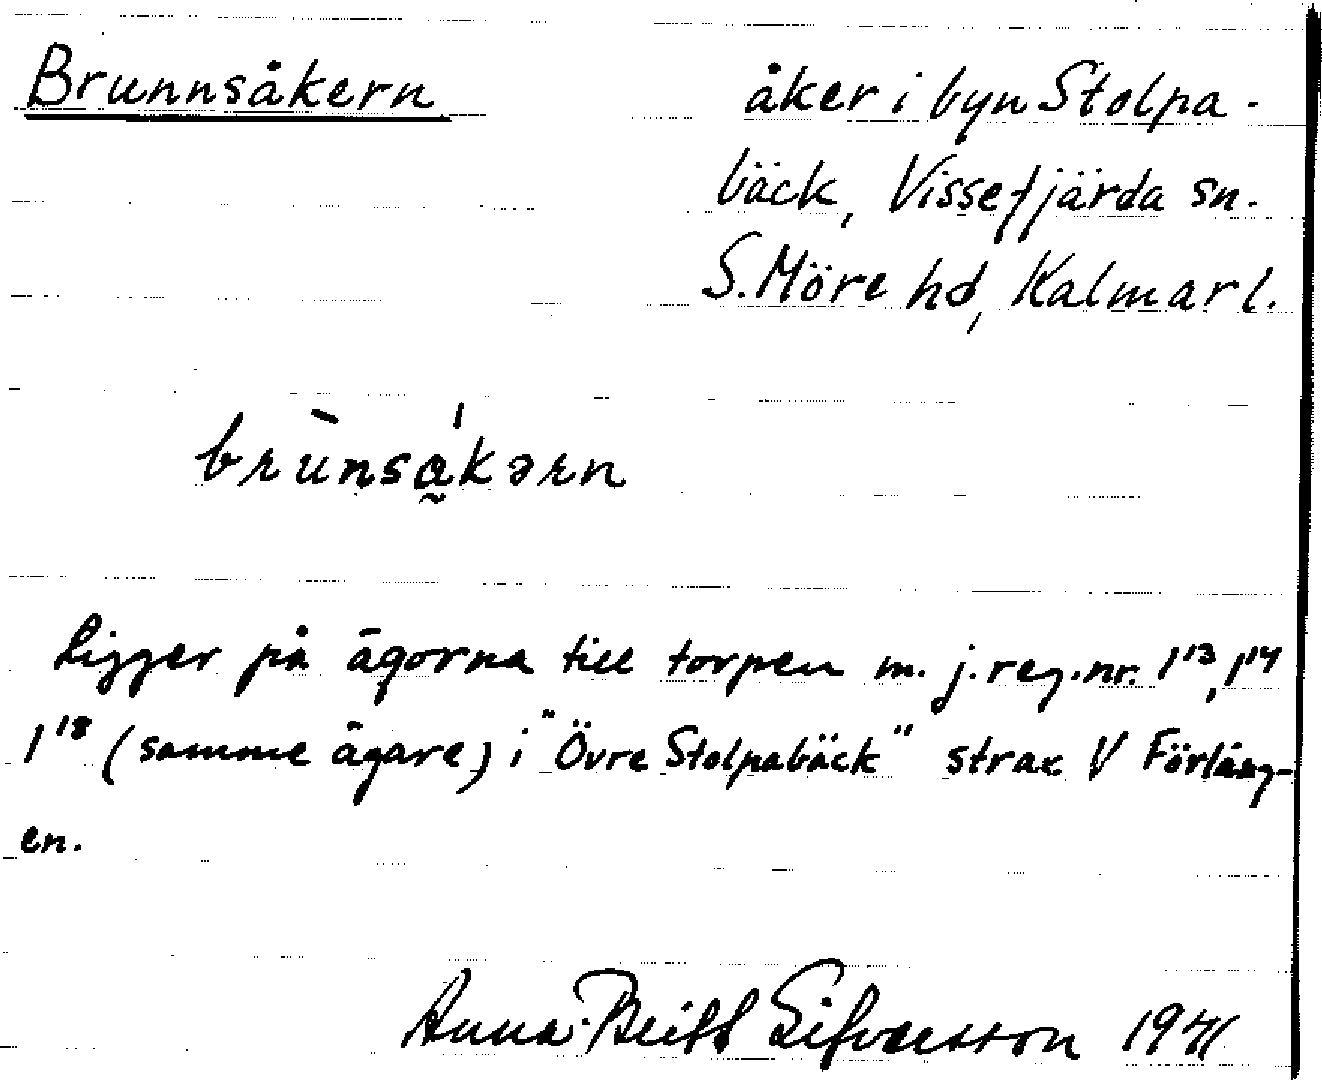 Brunnsåkern
åker i byn Stolpa-
bäck, Vissefjärda sn.
S. Möre hd, Kalmar l.
brùnsǻ̰kərn
Ligger på ägorna till torpen m. j.reg.nr. 1¹³, 1¹⁴
1¹⁸ (samme ägare) i "Övre Stolpabäck" strax V Förläng-
en.
Anna-Britt Sifvertsson 1941